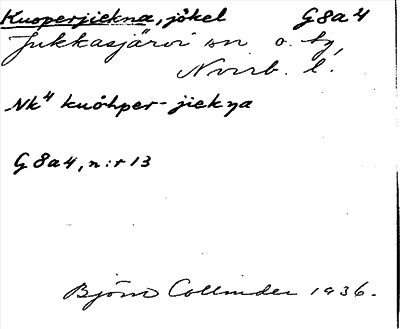 Kuoperjiekna, jökel G8a4
Jukkasjärvi sn o. tg,
Norrb. l.
Nk⁴ kuòhper-jiekŋa
G8a4, n:r 13
Björn Collinder 1936.